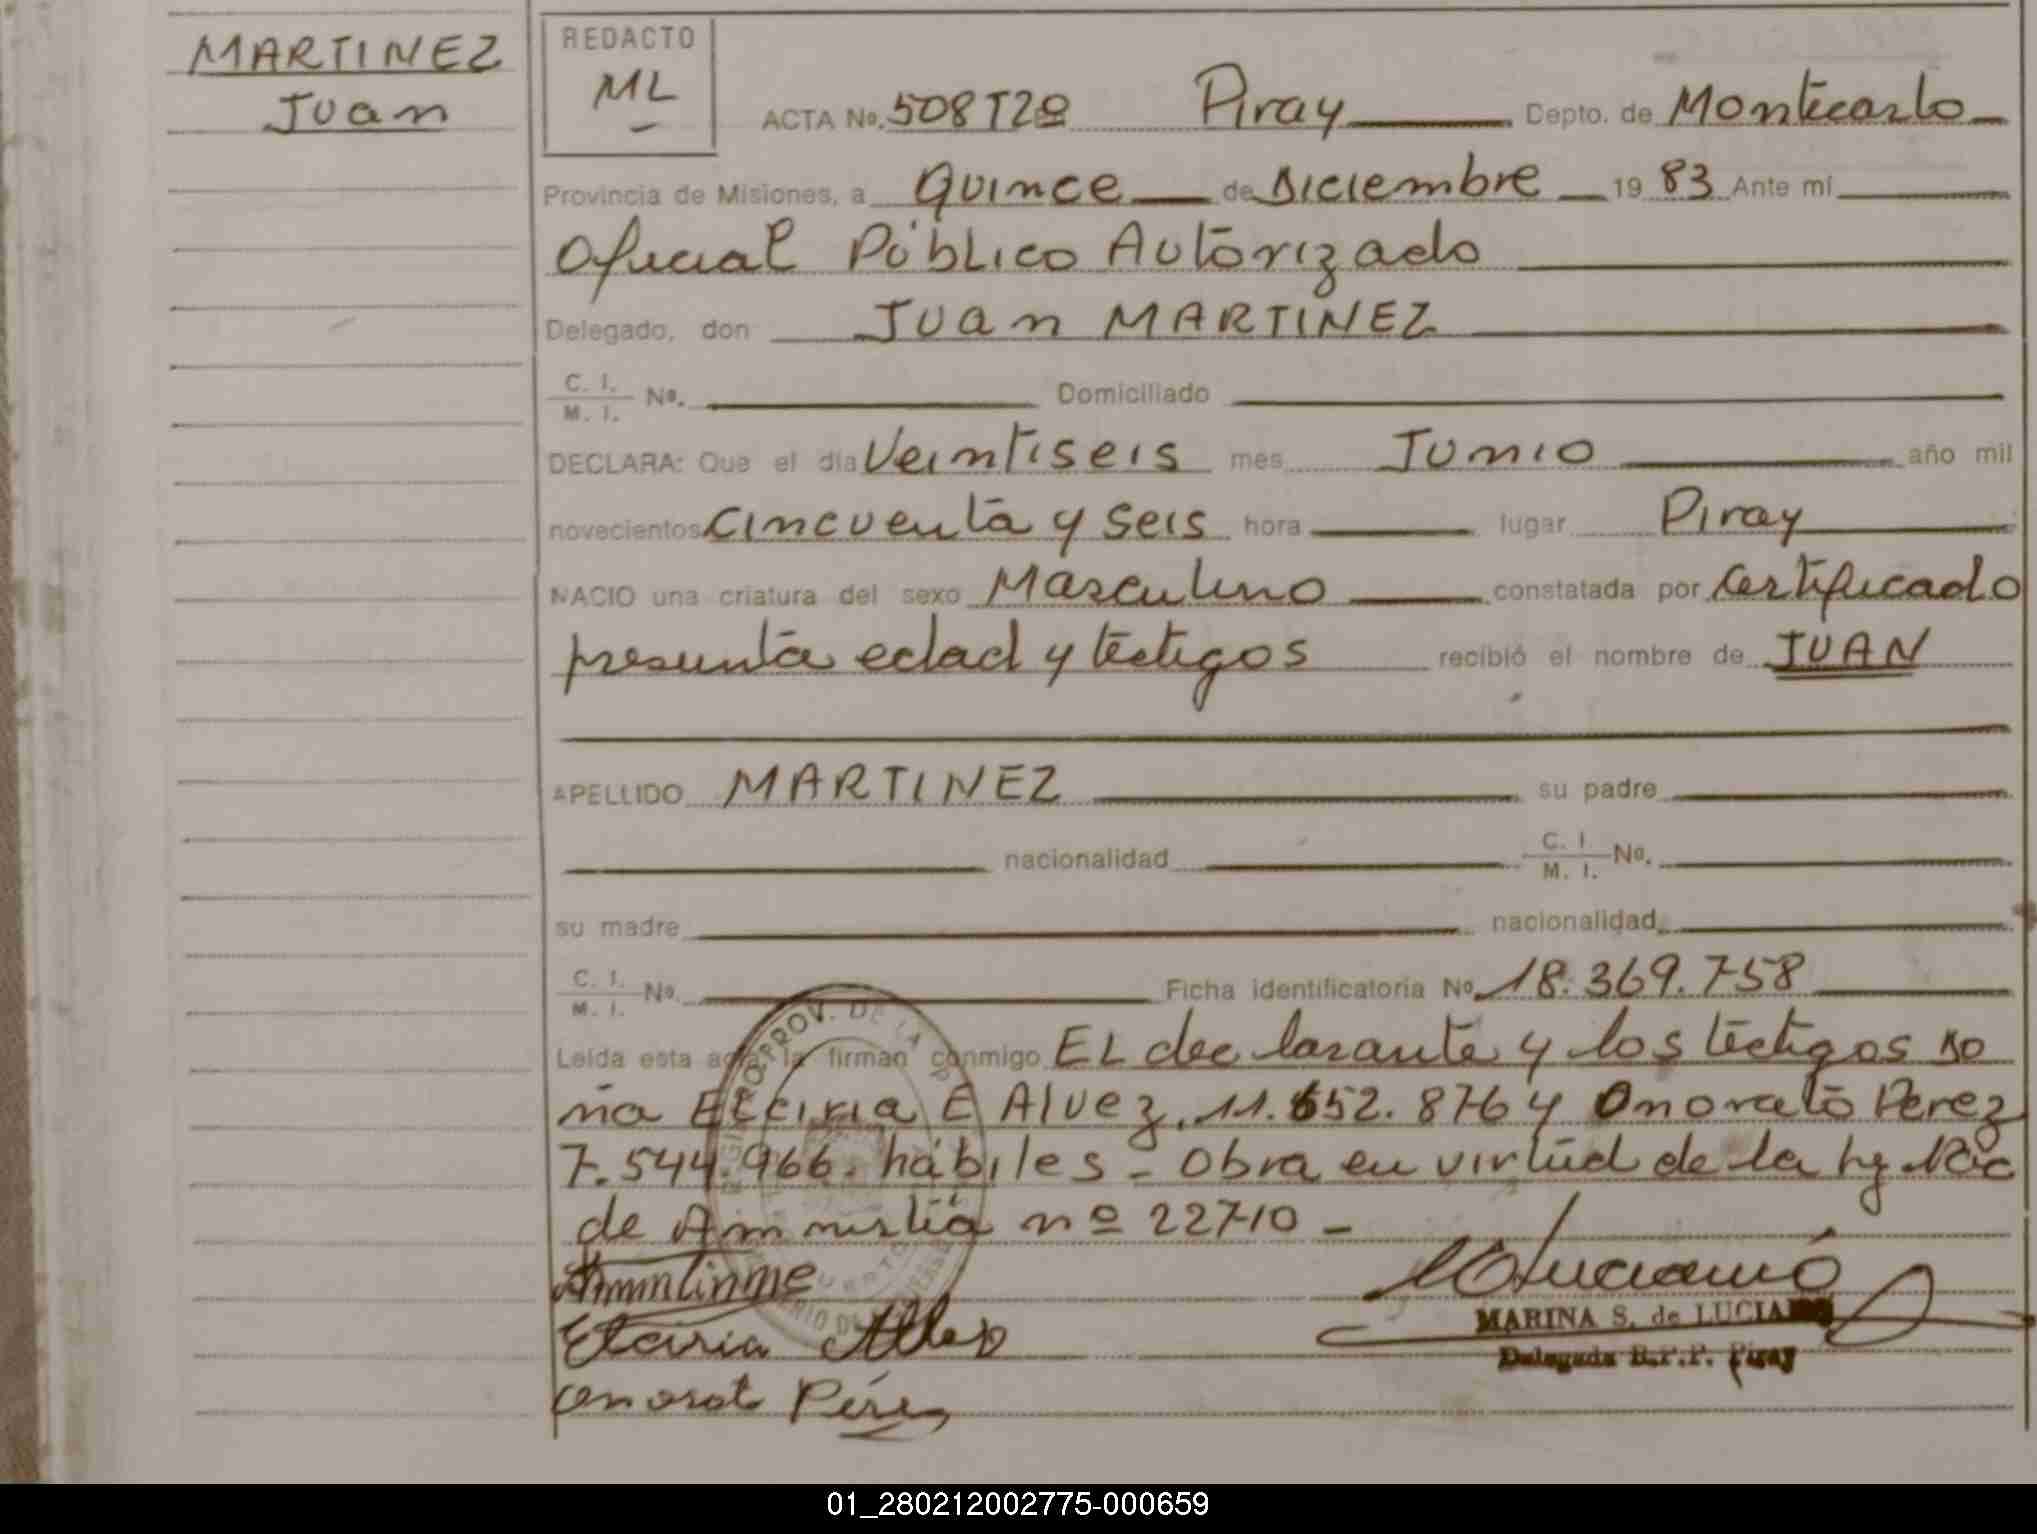 MARTINEZ
Juan
REDACTO
ML
ACTA No. 508 T2º Piray Depto. de Montecarlo
Provincia de Misiones, a Quince de Diciembre 19 83 Ante mi
Oficial Público Autorizado
Delegado, don Juan MARTINEZ
C. I. / M. I. No. Domiciliado
DECLARA: Que el dia Veintiseis mes Junio año mil
novecientos Cincuenta y Seis hora lugar Piray
NACIO una criatura del sexo Masculino constatada por Certificado
presunta edad y testigos recibió el nombre de JUAN
APELLIDO MARTINEZ su padre
nacionalidad C. I. / M. I. No.
su madre nacionalidad
C. I. / M. I. No. Ficha identificatoria No. 18.369.758
Leida esta acta la firman conmigo El declarante y los testigos Do
ña Elciria E Alvez. 11.652.876 y Onorato Perez
7.544.966. hábiles - Obra en virtud de la Ley
de Amnistía nº 22710 -
Elciria Alvez
Onorato Pérez
MARINA S. de LUCIANO
Delegada R.P.P. Piray
01_280212002775-000659